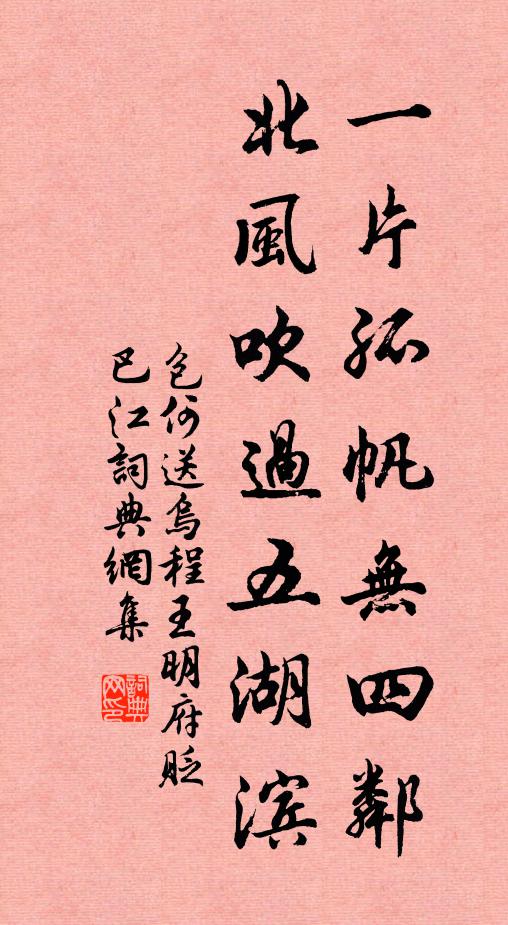 一片孤帆無四鄰
北風吹過五湖滨
包何送烏程王明府貶
巴江詞典網集
詞典網印